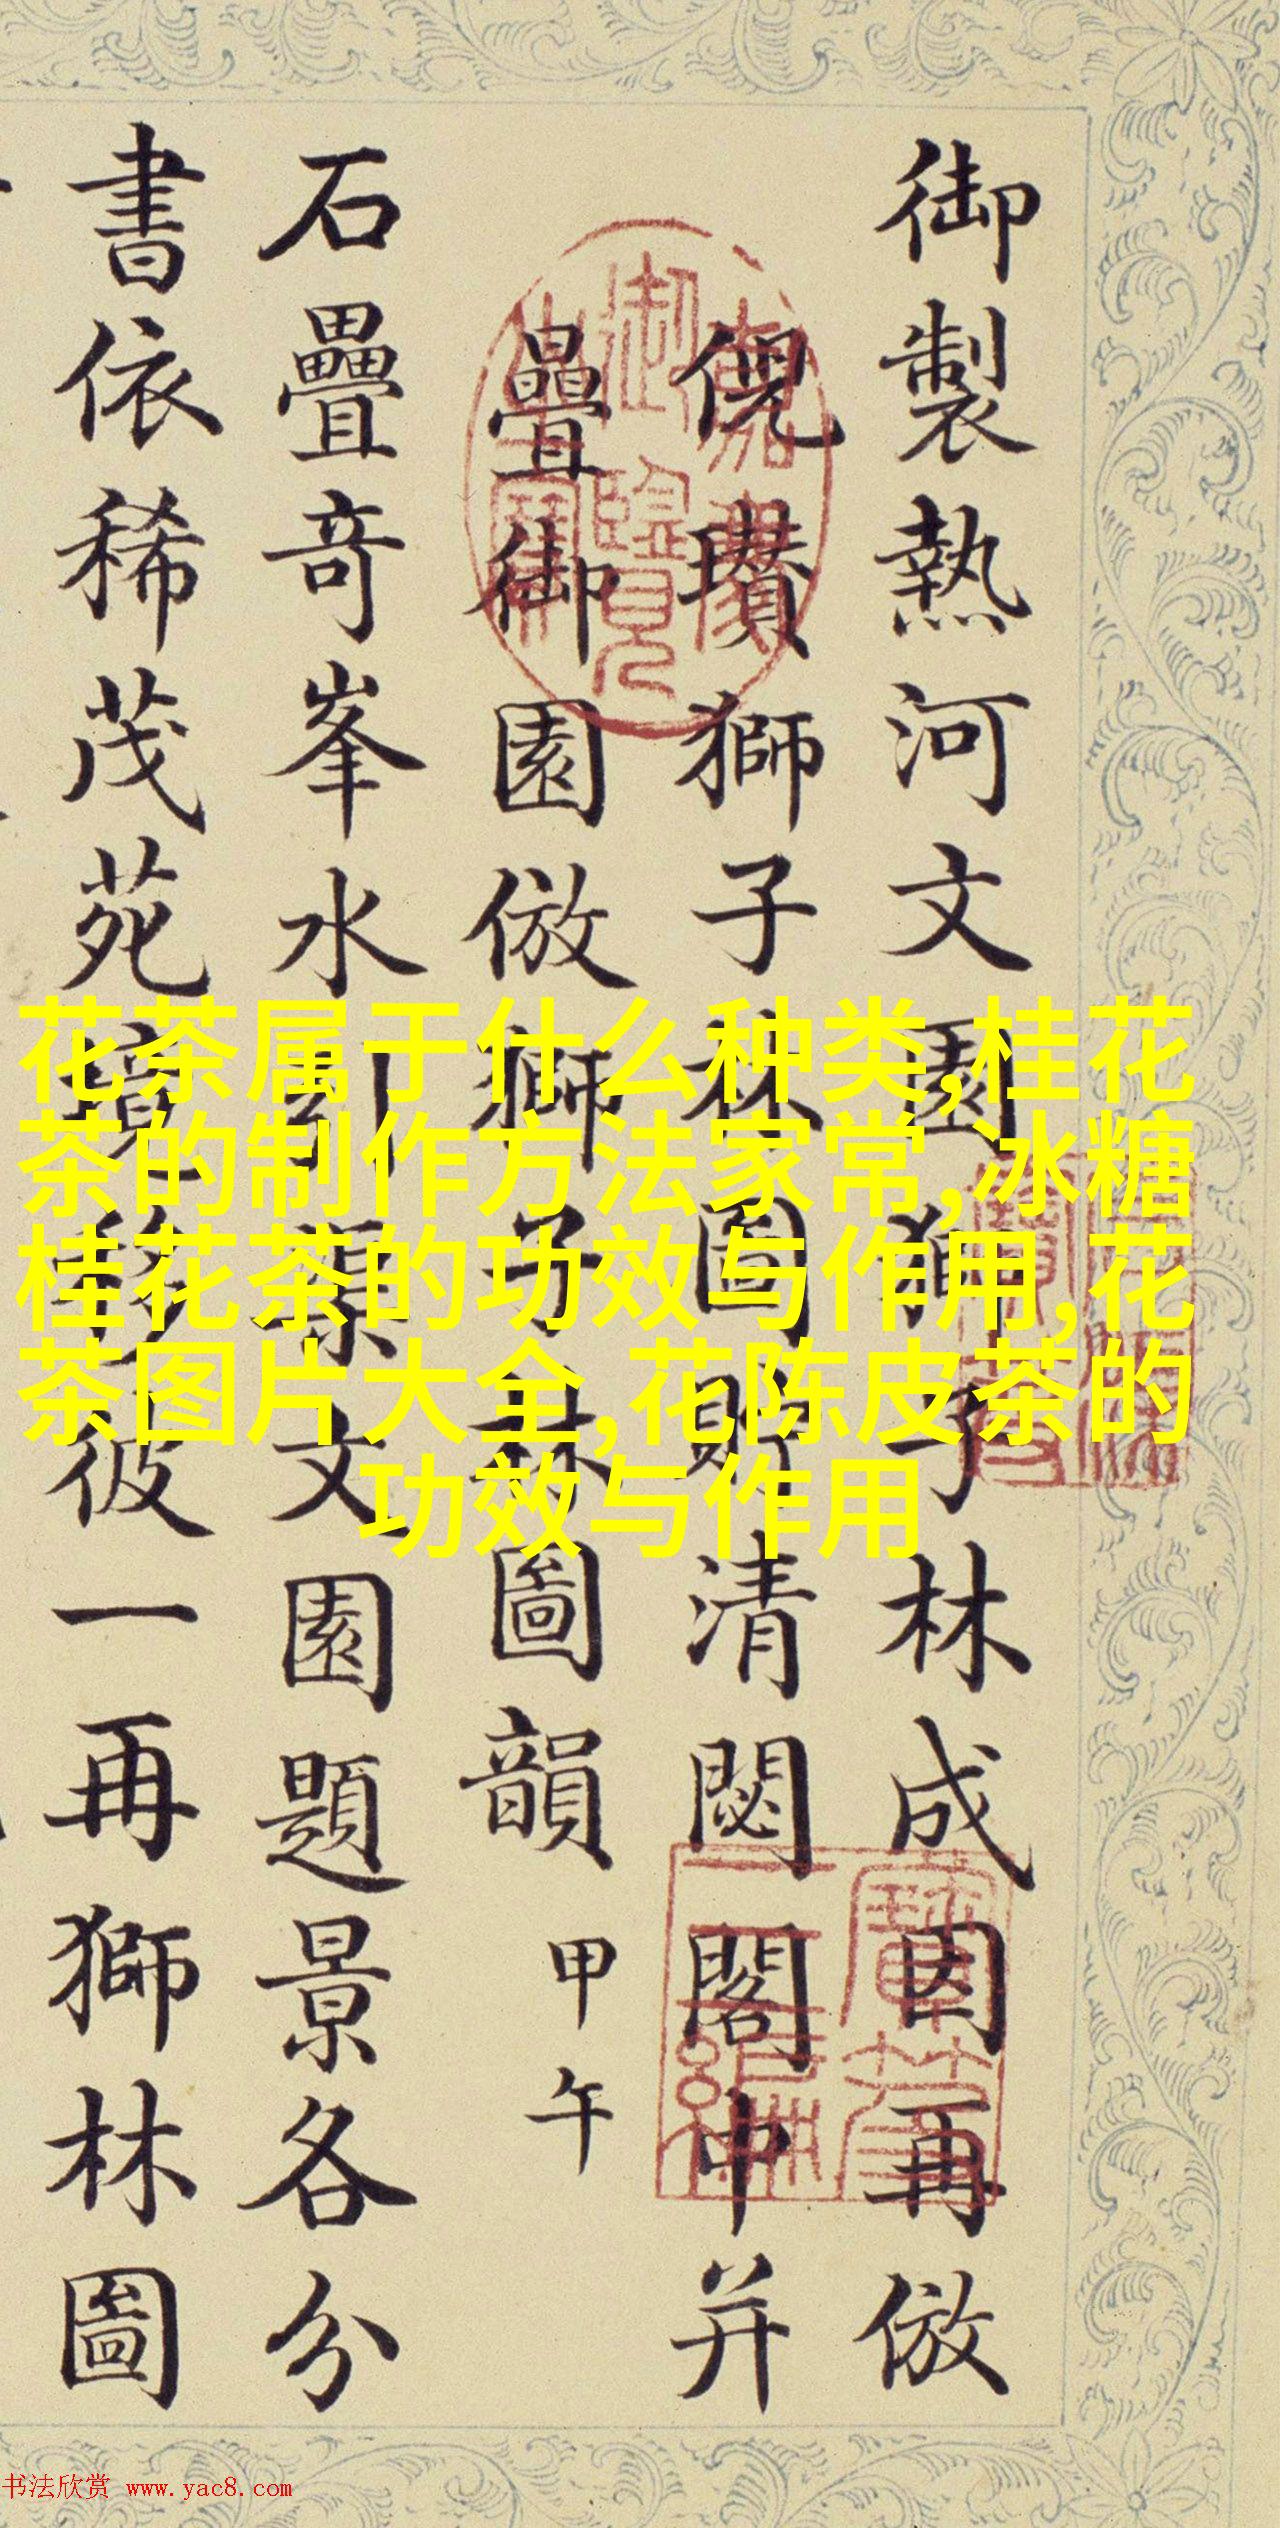 御製熱河文園獅子林成因再倣
倪瓚獅子林圖貯清閟閣中并
疊御園倣獅子林圖韻 甲午
石疊奇峯水引渠文園題景各分
書依稀茂苑境移彼一再獅林圖
花茶属于什么种类,桂花
茶的制作方法家常,冰糖
桂花茶的功效与作用,花
茶图片大全,花陈皮茶的
功效与作用
书法欣赏 www.yac8.com